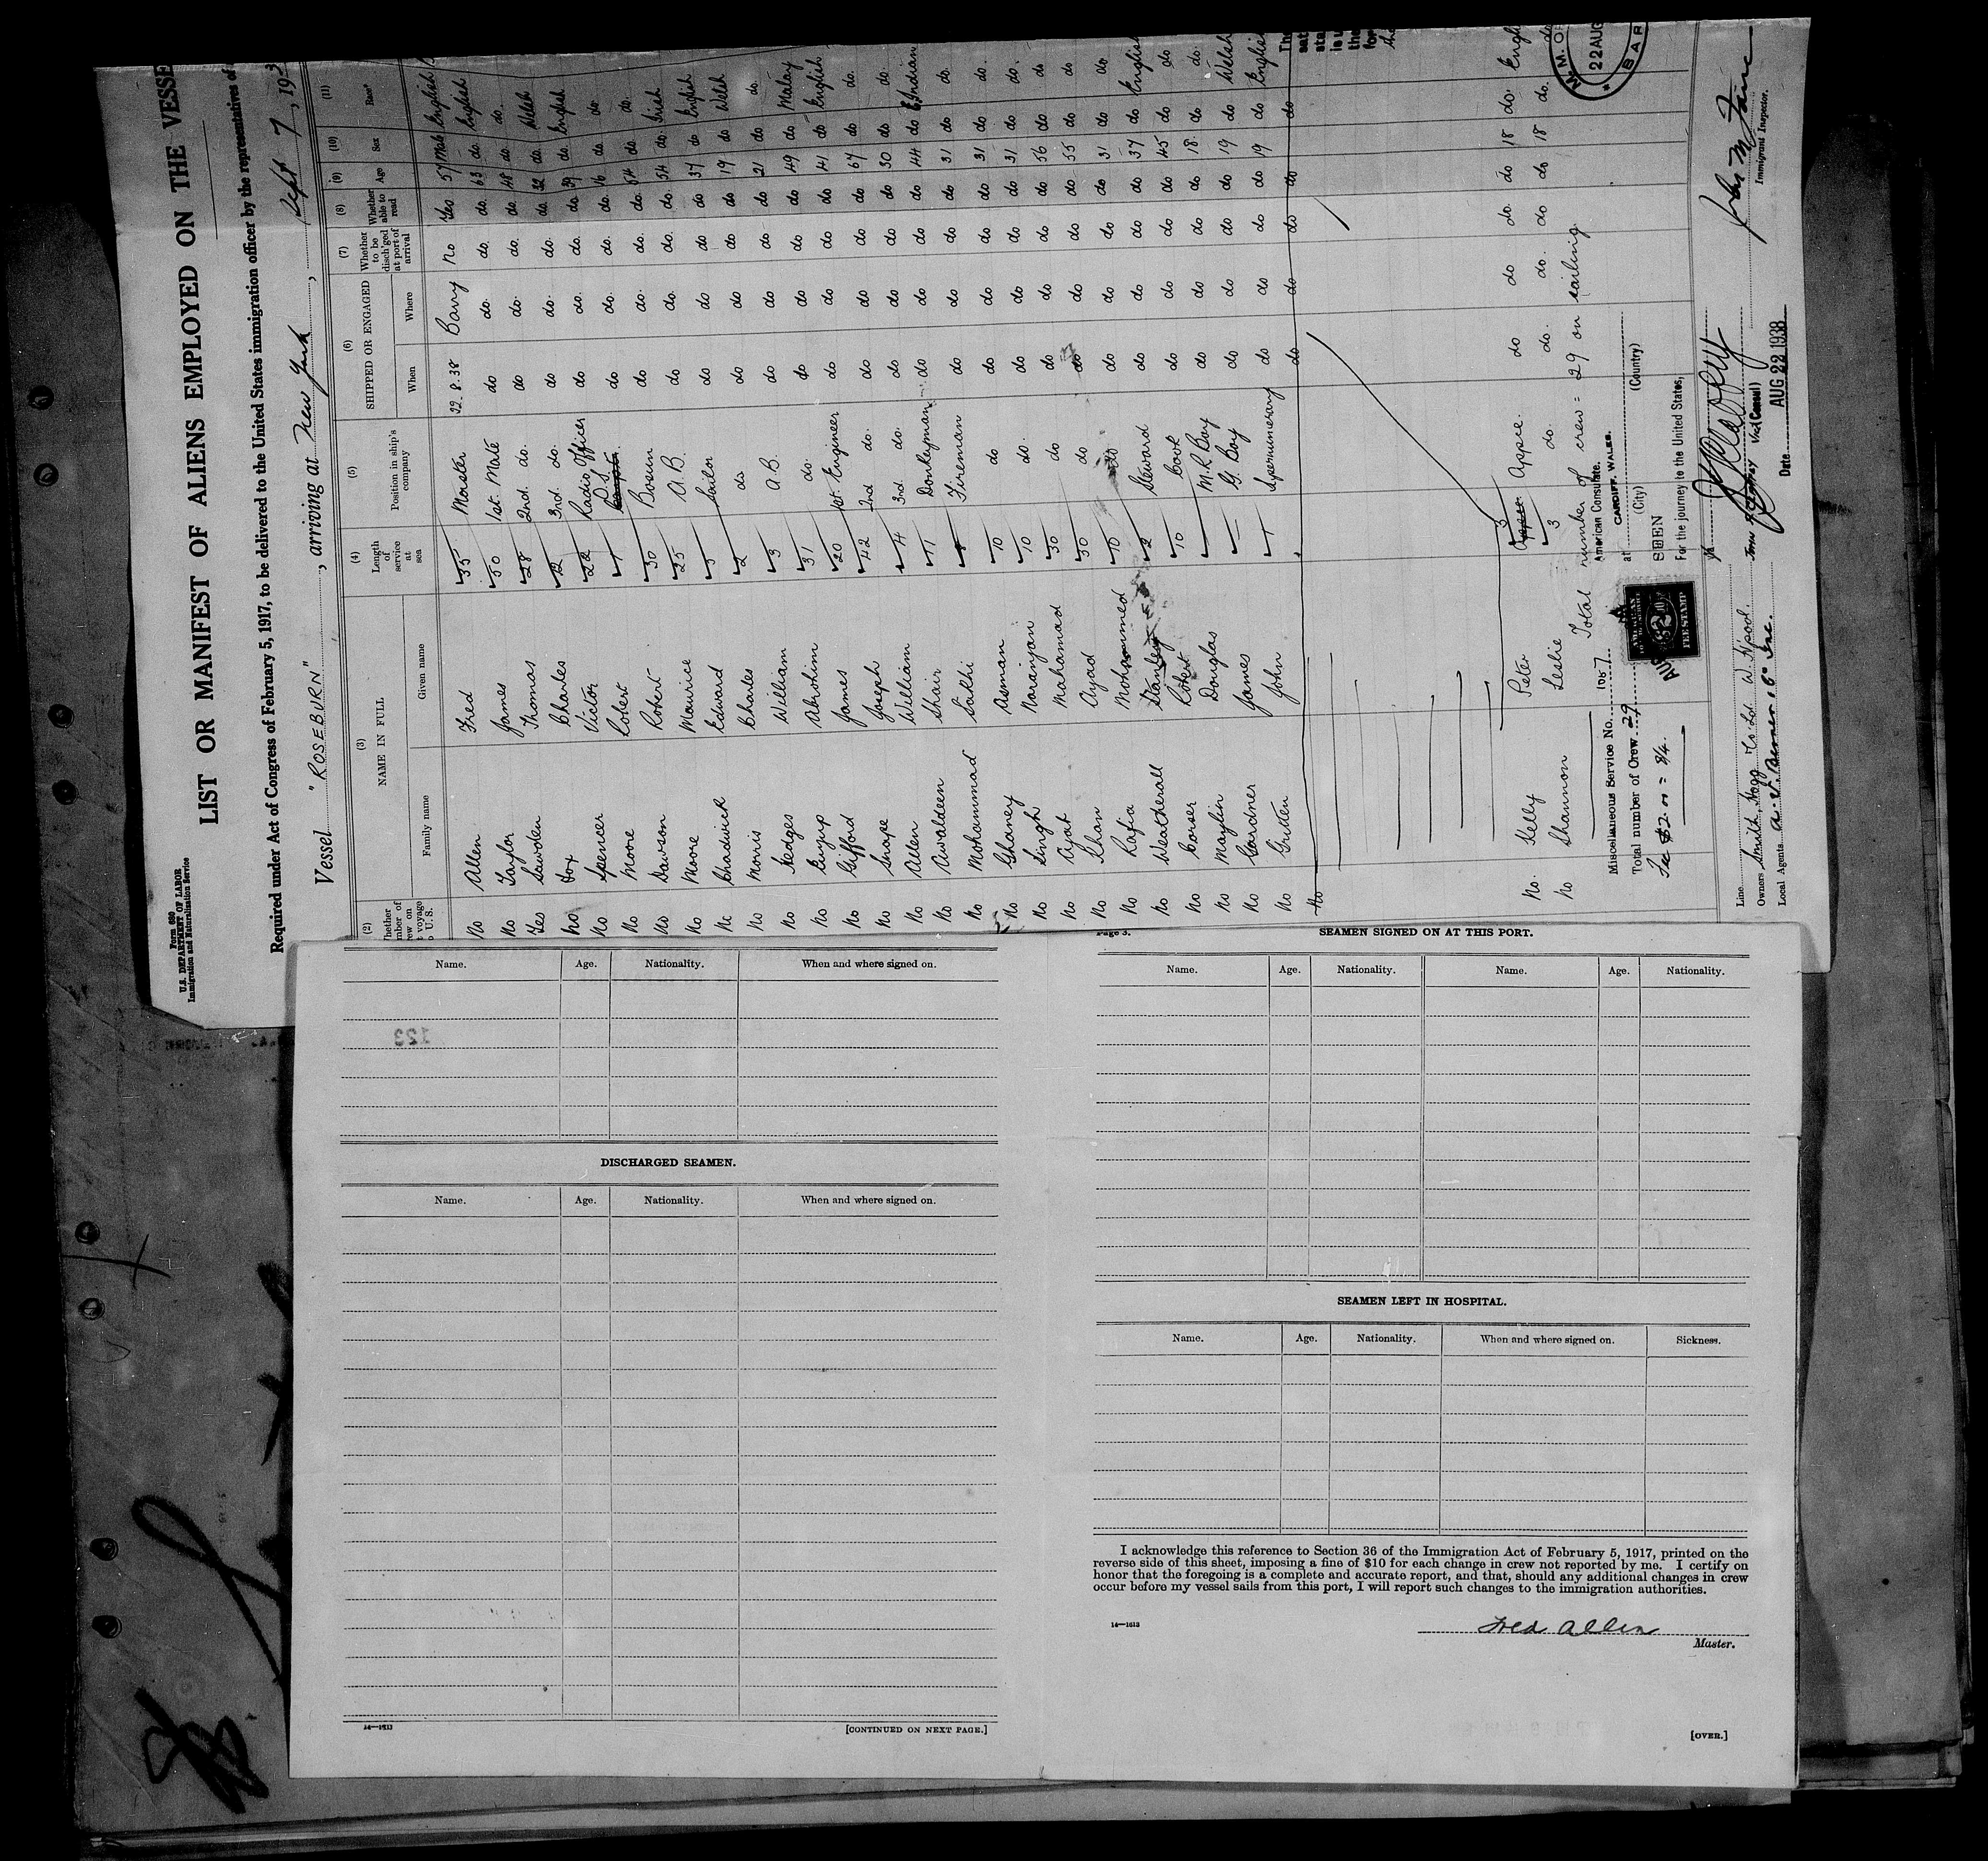 Form 680
U.S. DEPARTMENT OF LABOR
Immigration and Naturalization Service
LIST OR MANIFEST OF ALIENS EMPLOYED ON THE VESSE
Required under Act of Congress of February 5, 1917, to be delivered to the United States immigration officer by the representatives of
Vessel "ROSEBURN", arriving at New York, Sept 7, 193
(2) (3) (4) (5) (6) (7) (8) (9) (10) (11)
NAME IN FULL
Family name Given name
Length of service at sea
Position in ship's company
SHIPPED OR ENGAGED
When Where
Whether to be disch'ged at port of arrival
Whether able to read
Age Sex Race*
No Allen Fred 35 Master 22.8.38 Barry No Yes 57 Male English
No Taylor James 50 1st. Mate do do. do. do. 63 do. English
Yes Sawden Thomas 28 2nd. do. do do. do. do. 48 do. do.
No Fox Charles 12 3rd. do. do do. do. do. 32 do. Welsh
No Spencer Victor 22 Radio Officer do do. do. do. 39 do. English
No Moore Robert 1 D.S. do do. do. do. 16 do do.
No Dawson Robert 30 Bosun do do. do. do. 54 do do.
No Moore Maurice 25 A.B. do do. do. do. 54 do. Irish
No Chadwick Edward 5 Sailor do do do do 37 do English
No Morris Charles 2 do do do do do 19 do Welsh
No Hedges William 3 A.B. do do do do 21 do do.
No Abrohim 31 do. do do do do 49 do Malay
No Gifford James 20 1st. Engineer do do do do 41 do English
No Snape Joseph 42 2nd do. do do do do 67 do do.
No Allen William 4 3rd do. do do do do 30 do do.
No Awaldeen Shair 11 Donkeyman do do do do 44 do E. Indian
No Mohammad Sakhi Fireman do do do do 31 do do.
No Ghaney Asman 10 do do do do do 31 do do.
No Singh Naranjan 10 do. do do do do 31 do do.
No Ayat Mahamad 30 do do do do do 56 do do
No Khan Ayad 30 do do do do do 55 do do
No Rafia Mohammed 10 do do do do do 31 do do
No Weatherall Stanley 2 Steward do do do do 37 do English
No Corser Robert 10 Cook do do do do 45 do do
No Maylin Douglas M.R. Boy do do do do 18 do do.
No Gardner James G. Boy do do do do 19 do Welsh
No Gritten John 1 Supernumerary do do do do 19 do English
No. Kelly Peter 3 Appre. do do do. do 18 do. Engl
No Shannon Leslie 3 do. do. do. do do 18 do. do
Total number of crew = 29 on sailing
Miscellaneous Service No. 1087
Total number of Crew 29
Fee $2.00 = 8/4.
AMERICAN
$2
FEE STAMP
American Consulate.
at CARDIFF, WALES.
(City) (Country)
SEEN
For the journey to the United States,
Vice Consul
Date AUG 22 1938
Line
Owners Smith, Hogg & Co Ld W. H'pool.
Local Agents
Immigrant Inspector.
22 AUG
BAR
Name. Age. Nationality. When and where signed on.
123
DISCHARGED SEAMEN.
Name. Age. Nationality. When and where signed on.
14—1613
[CONTINUED ON NEXT PAGE.]
Page 3.
SEAMEN SIGNED ON AT THIS PORT.
Name. Age. Nationality. Name. Age. Nationality.
SEAMEN LEFT IN HOSPITAL.
Name. Age. Nationality. When and where signed on. Sickness.
I acknowledge this reference to Section 36 of the Immigration Act of February 5, 1917, printed on the
reverse side of this sheet, imposing a fine of $10 for each change in crew not reported by me. I certify on
honor that the foregoing is a complete and accurate report, and that, should any additional changes in crew
occur before my vessel sails from this port, I will report such changes to the immigration authorities.
14—1613
Fred Allen
Master.
[OVER.]